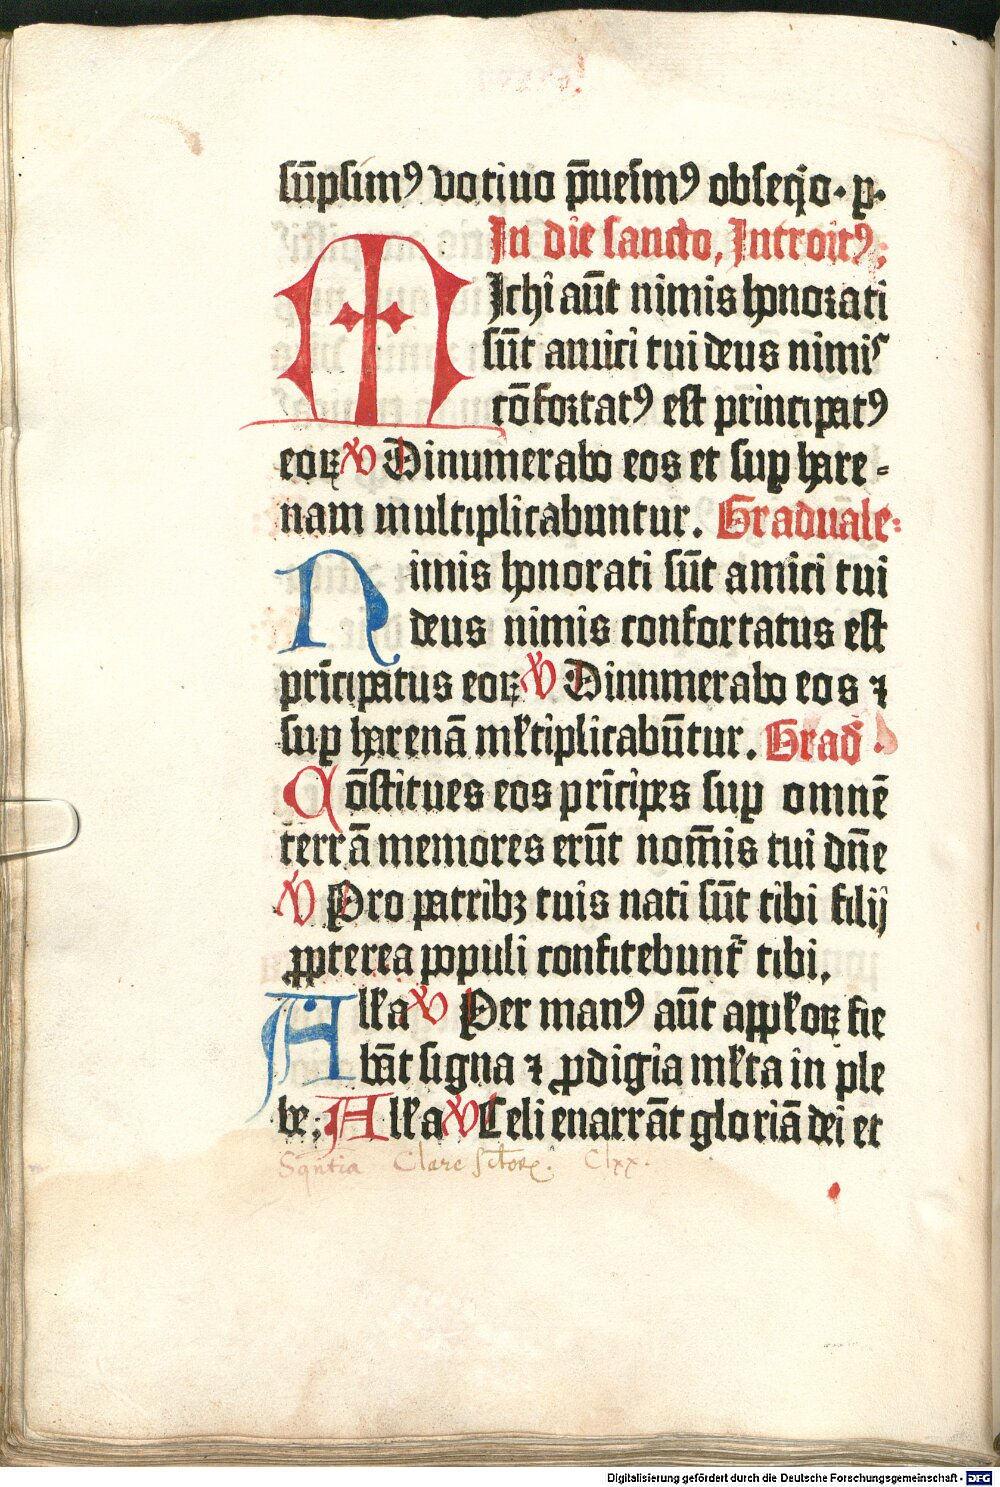 sūpsimꝰ votiuo p̄ueīmꝰ obseq̄o· ꝑ·
In die sancto, Introitꝰ:
MIchi aūt nimis honorati
sūt amici tui deus nimis
cōfortatꝰ est principatꝰ
eoꝝ ℣ Dinumerabo eos et suꝑ hare-
nam multiplicabuntur. Graduale:
Nimis honorati sūt amici tui
deus nimis confortatus est
prīcipatus eoꝝ ℣ Dinumerabo eos ⁊
suꝑ harenā mĺtiplicabūtur. Grad̄·
Cōstitues eos prīcipes suꝑ omnē
terrā memores erūt nōmis tui dn̄e
℣ Pro patribꝫ tuis nati sūt tibi filij
ꝓpterea populi confitebunt̄ tibi.
Alĺa ℣ Per manꝰ aūt apposĺoꝝ fie
bāt signa ⁊ ꝓdigia mĺta in ple
be; Alĺa ℣ Celi enarrāt gloriā dei et
Sqntia Clare sctoꝝ. Clxx.
Digitalisierung gefördert durch die Deutsche Forschungsgemeinschaft - DFG